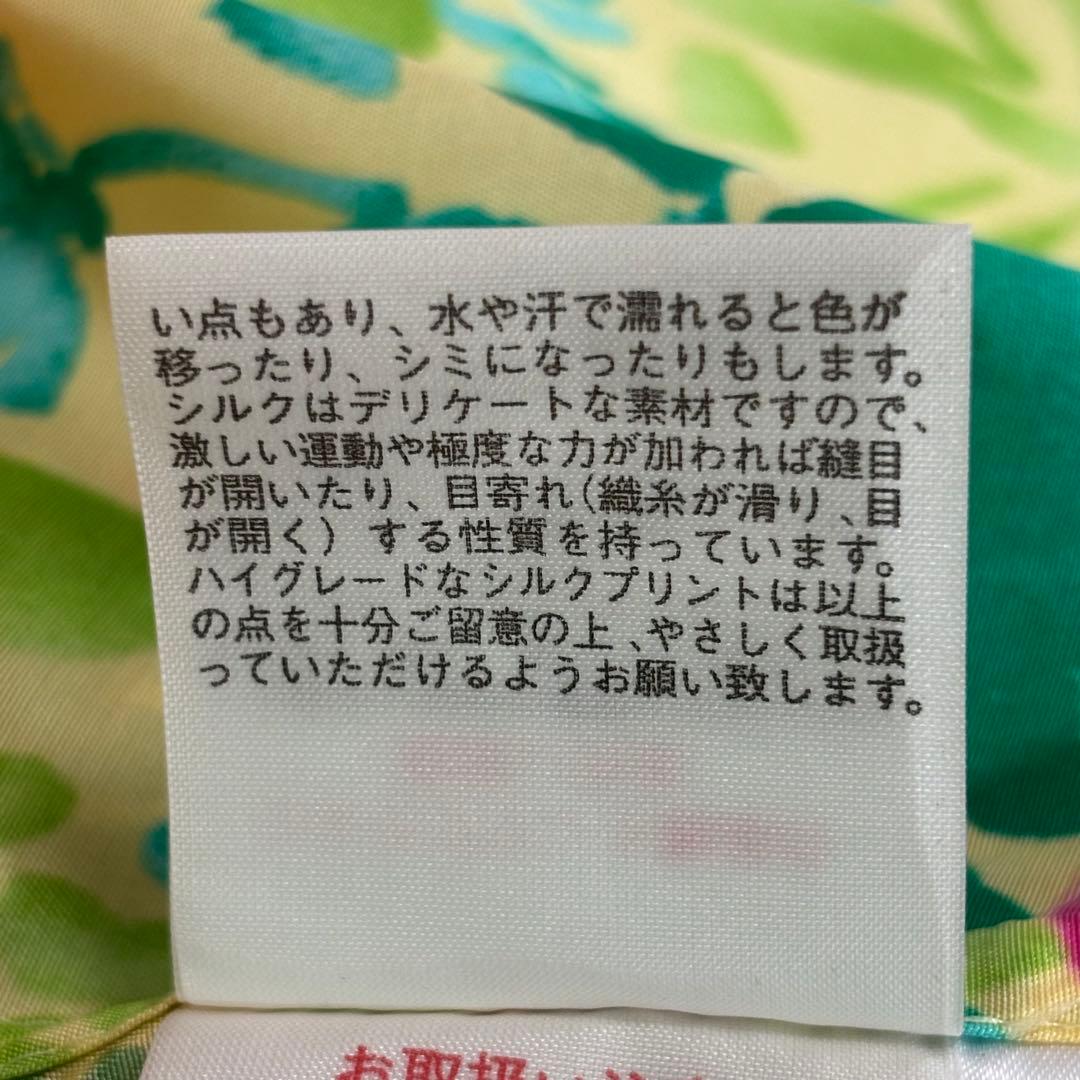 い点もあり、水や汗で濡れると色が
移ったり、シミになったりもします。
シルクはデリケートな素材ですので、
激しい運動や極度な力が加われば縫目
が開いたり、目寄れ(織糸が滑り、目
が開く)する性質を持っています。
ハイグレードなシルクプリントは以上
の点を十分ご留意の上、やさしく取扱
っていただけるようお願い致します。
お取扱い